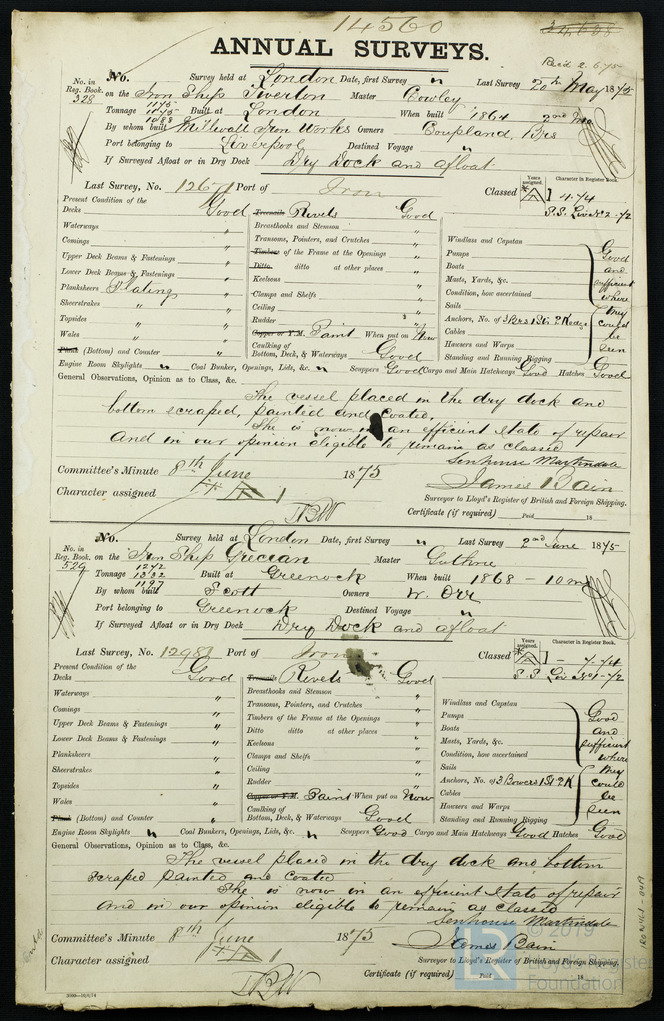 14560
ANNUAL SURVEYS.
Rec'd 2.6.75
No. in Reg. Book. 328
No. Survey held at London Date, first Survey " Last Survey 20th May 1875
on the Iron Ship Tiverton Master Cowley
Tonnage Built at London When built 1864 2nd Mo
By whom built Millwall Iron Works Owners Coupland Brs
Port belonging to Liverpool Destined Voyage "
If Surveyed Afloat or in Dry Dock Dry Dock and afloat
Last Survey, No. 12671 Port of Iron Classed
Years assigned. Character in Register Book.
S.S. Liv No 2-72
Present Condition of the
Decks Good
Waterways "
Comings "
Upper Deck Beams & Fastenings "
Lower Deck Beams & Fastenings "
Planksheers Plating "
Sheerstrakes " "
Topsides " "
Wales " "
Plank (Bottom) and Counter "
Treenails Rivets Good
Breasthooks and Stemson "
Transoms, Pointers, and Crutches "
Timbers of the Frame at the Openings "
Ditto ditto at other places "
Keelsons "
Clamps and Shelfs "
Ceiling "
Rudder "
Copper or Y.M. Paint When put on Now
Caulking of Bottom, Deck, & Waterways Good
Windlass and Capstan
Pumps
Boats
Masts, Yards, &c.
Condition, how ascertained
Sails
Anchors, No. of 3 Brs 1 St. 2 Kedgs
Cables
Hawsers and Warps
Standing and Running Rigging
Good and sufficient where they could be seen
Engine Room Skylights " Coal Bunker, Openings, Lids, &c. " Scuppers Good Cargo and Main Hatchways Good Hatches Good
General Observations, Opinion as to Class, &c.
The vessel placed in the dry dock and
bottom scraped, painted and coated.
She is now in an efficient state of repair
and in our opinion eligible to remain as classed
Senhouse Martindale
Committee's Minute 8th June 1875
James Bain
Character assigned
Surveyor to Lloyd's Register of British and Foreign Shipping.
Certificate (if required) Paid 18
No. in Reg. Book. 529
No. Survey held at London Date, first Survey " Last Survey 2nd June 1875
on the Iron Ship Grecian Master Guthrie
Tonnage 1242 1332 1197 Built at Greenock When built 1868 - 10 mo
By whom built Scott Owners W. Orr
Port belonging to Greenock Destined Voyage "
If Surveyed Afloat or in Dry Dock Dry Dock and afloat
Last Survey, No. 12981 Port of Iron Classed
Years assigned. Character in Register Book.
S.S. Liv No 1-72
Present Condition of the
Decks Good
Waterways "
Comings "
Upper Deck Beams & Fastenings "
Lower Deck Beams & Fastenings "
Planksheers "
Sheerstrakes "
Topsides "
Wales "
Plank (Bottom) and Counter "
Treenails Rivets Good
Breasthooks and Stemson "
Transoms, Pointers, and Crutches "
Timbers of the Frame at the Openings "
Ditto ditto at other places "
Keelsons "
Clamps and Shelfs "
Ceiling "
Rudder "
Copper or Y.M. Paint When put on Now
Caulking of Bottom, Deck, & Waterways Good
Windlass and Capstan
Pumps
Boats
Masts, Yards, &c.
Condition, how ascertained
Sails
Anchors, No. of 3 Bowers 1 St 2 K
Cables
Hawsers and Warps
Standing and Running Rigging
Good and sufficient where they could be seen
Engine Room Skylights " Coal Bunkers, Openings, Lids, &c. " Scuppers Good Cargo and Main Hatchways Good Hatches Good
General Observations, Opinion as to Class, &c.
The vessel placed in the dry dock and bottom
scraped painted and coated
She is now in an efficient state of repair
and in our opinion eligible to remain as classed
Senhouse Martindale
Committee's Minute 8th June 1875
James Bain
Character assigned
Surveyor to Lloyd's Register of British and Foreign Shipping.
Certificate (if required) Paid 18
© 2019
Lloyd's Register
Foundation